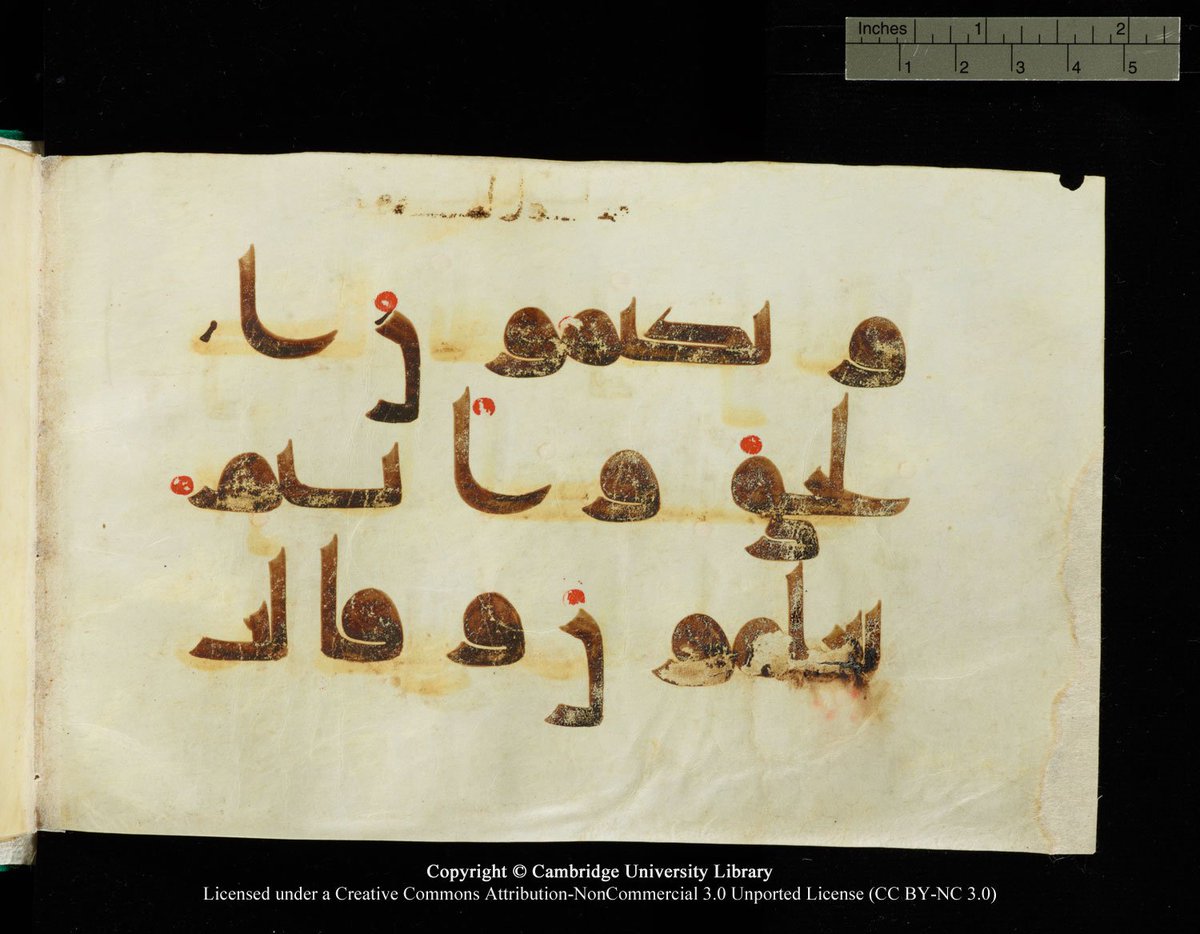 Inches 1 2
1 2 3 4 5
و تكتمو ن ا
لحق و ا نتم
تعلمو ن و قا لت
Copyright © Cambridge University Library
Licensed under a Creative Commons Attribution-NonCommercial 3.0 Unported License (CC BY-NC 3.0)